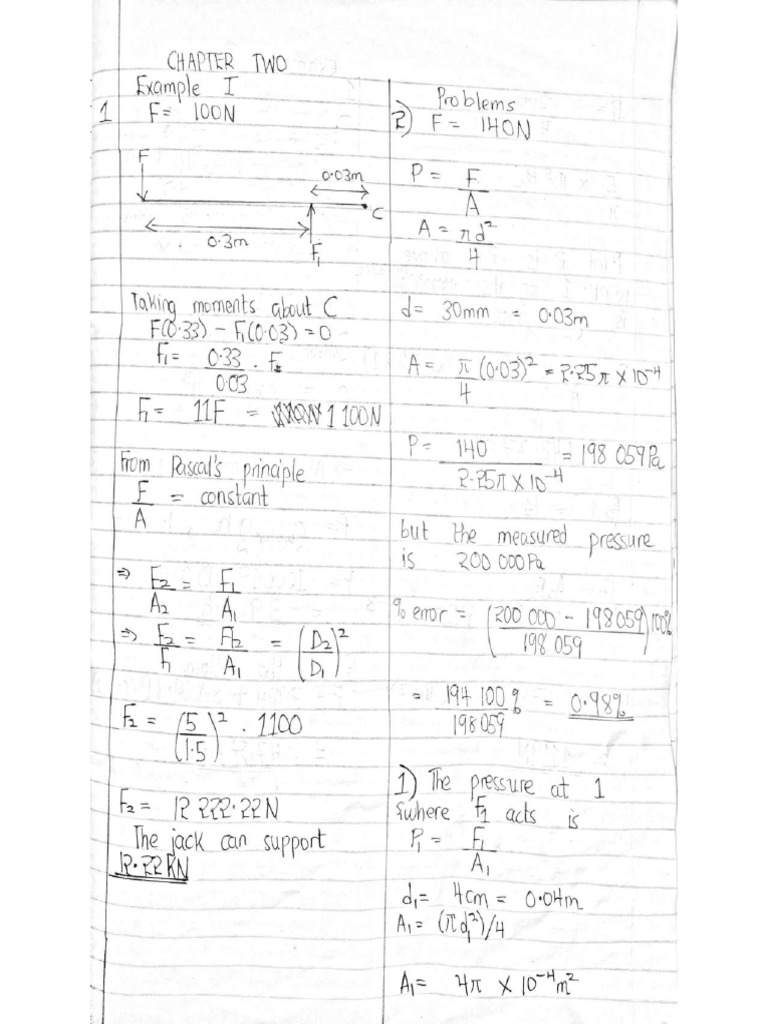 CHAPTER TWO
Example I
1 F= 100N
F
0.03m
C
0.3m
F₁
Taking moments about C
F(0.33) - F₁(0.03) = 0
F₁= 0.33/0.03 . F
F₁= 11F = 1100N
From Pascal's principle
F/A = constant
⇒ F₂/A₂ = F₁/A₁
⇒ F₂/F₁ = A₂/A₁ = (D₂/D₁)²
F₂ = (5/1.5)² . 1100
F₂= 12 222.22N
The jack can support
12.22KN
Problems
2) F = 140N
P = F/A
A = πd²/4
d= 30mm = 0.03m
A= π/4 (0.03)² = 2.25π × 10⁻⁴
P= 140/2.25π × 10⁻⁴ = 198 059Pa
but the measured pressure
is 200 000Pa
% error = (200 000 - 198059/198 059)100%
= 194 100/198059 % = 0.98%
1) The pressure at 1
where F₁ acts is
P₁ = F₁/A₁
d₁= 4cm = 0.04m
A₁= (πd₁²)/4
A₁= 4π × 10⁻⁴m²